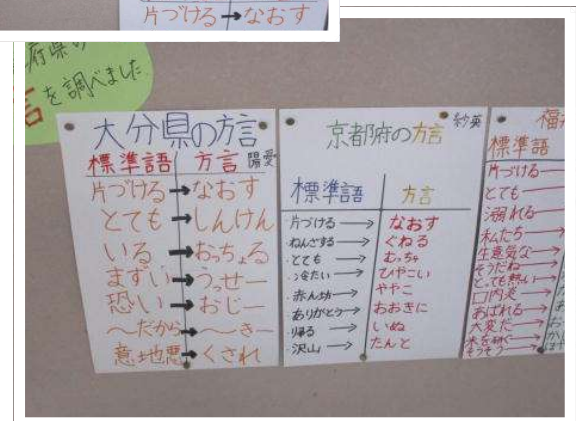 片づける→なおす
府県の
言を調べました
大分県の方言 陽愛
標準語 方言
片づける→なおす
とても→しんけん
いる→おっちょる
まずい→うっせー
恐い→おじー
〜だから→〜きー
意地悪→くされ
京都府の方言 紗英
標準語 方言
・片づける→なおす
・ねんざする→ぐねる
・とても→むっちゃ
・冷たい→ひやこい
・赤ん坊→ややこ
・ありがとう→おおきに
・帰る→いぬ
・沢山→たんと
福
標準語
片づける
とても
溺れる
私たち
生意気な
そうだね
とても熱い
口内炎
あばれる
大変だ
米を研ぐ
そうそう